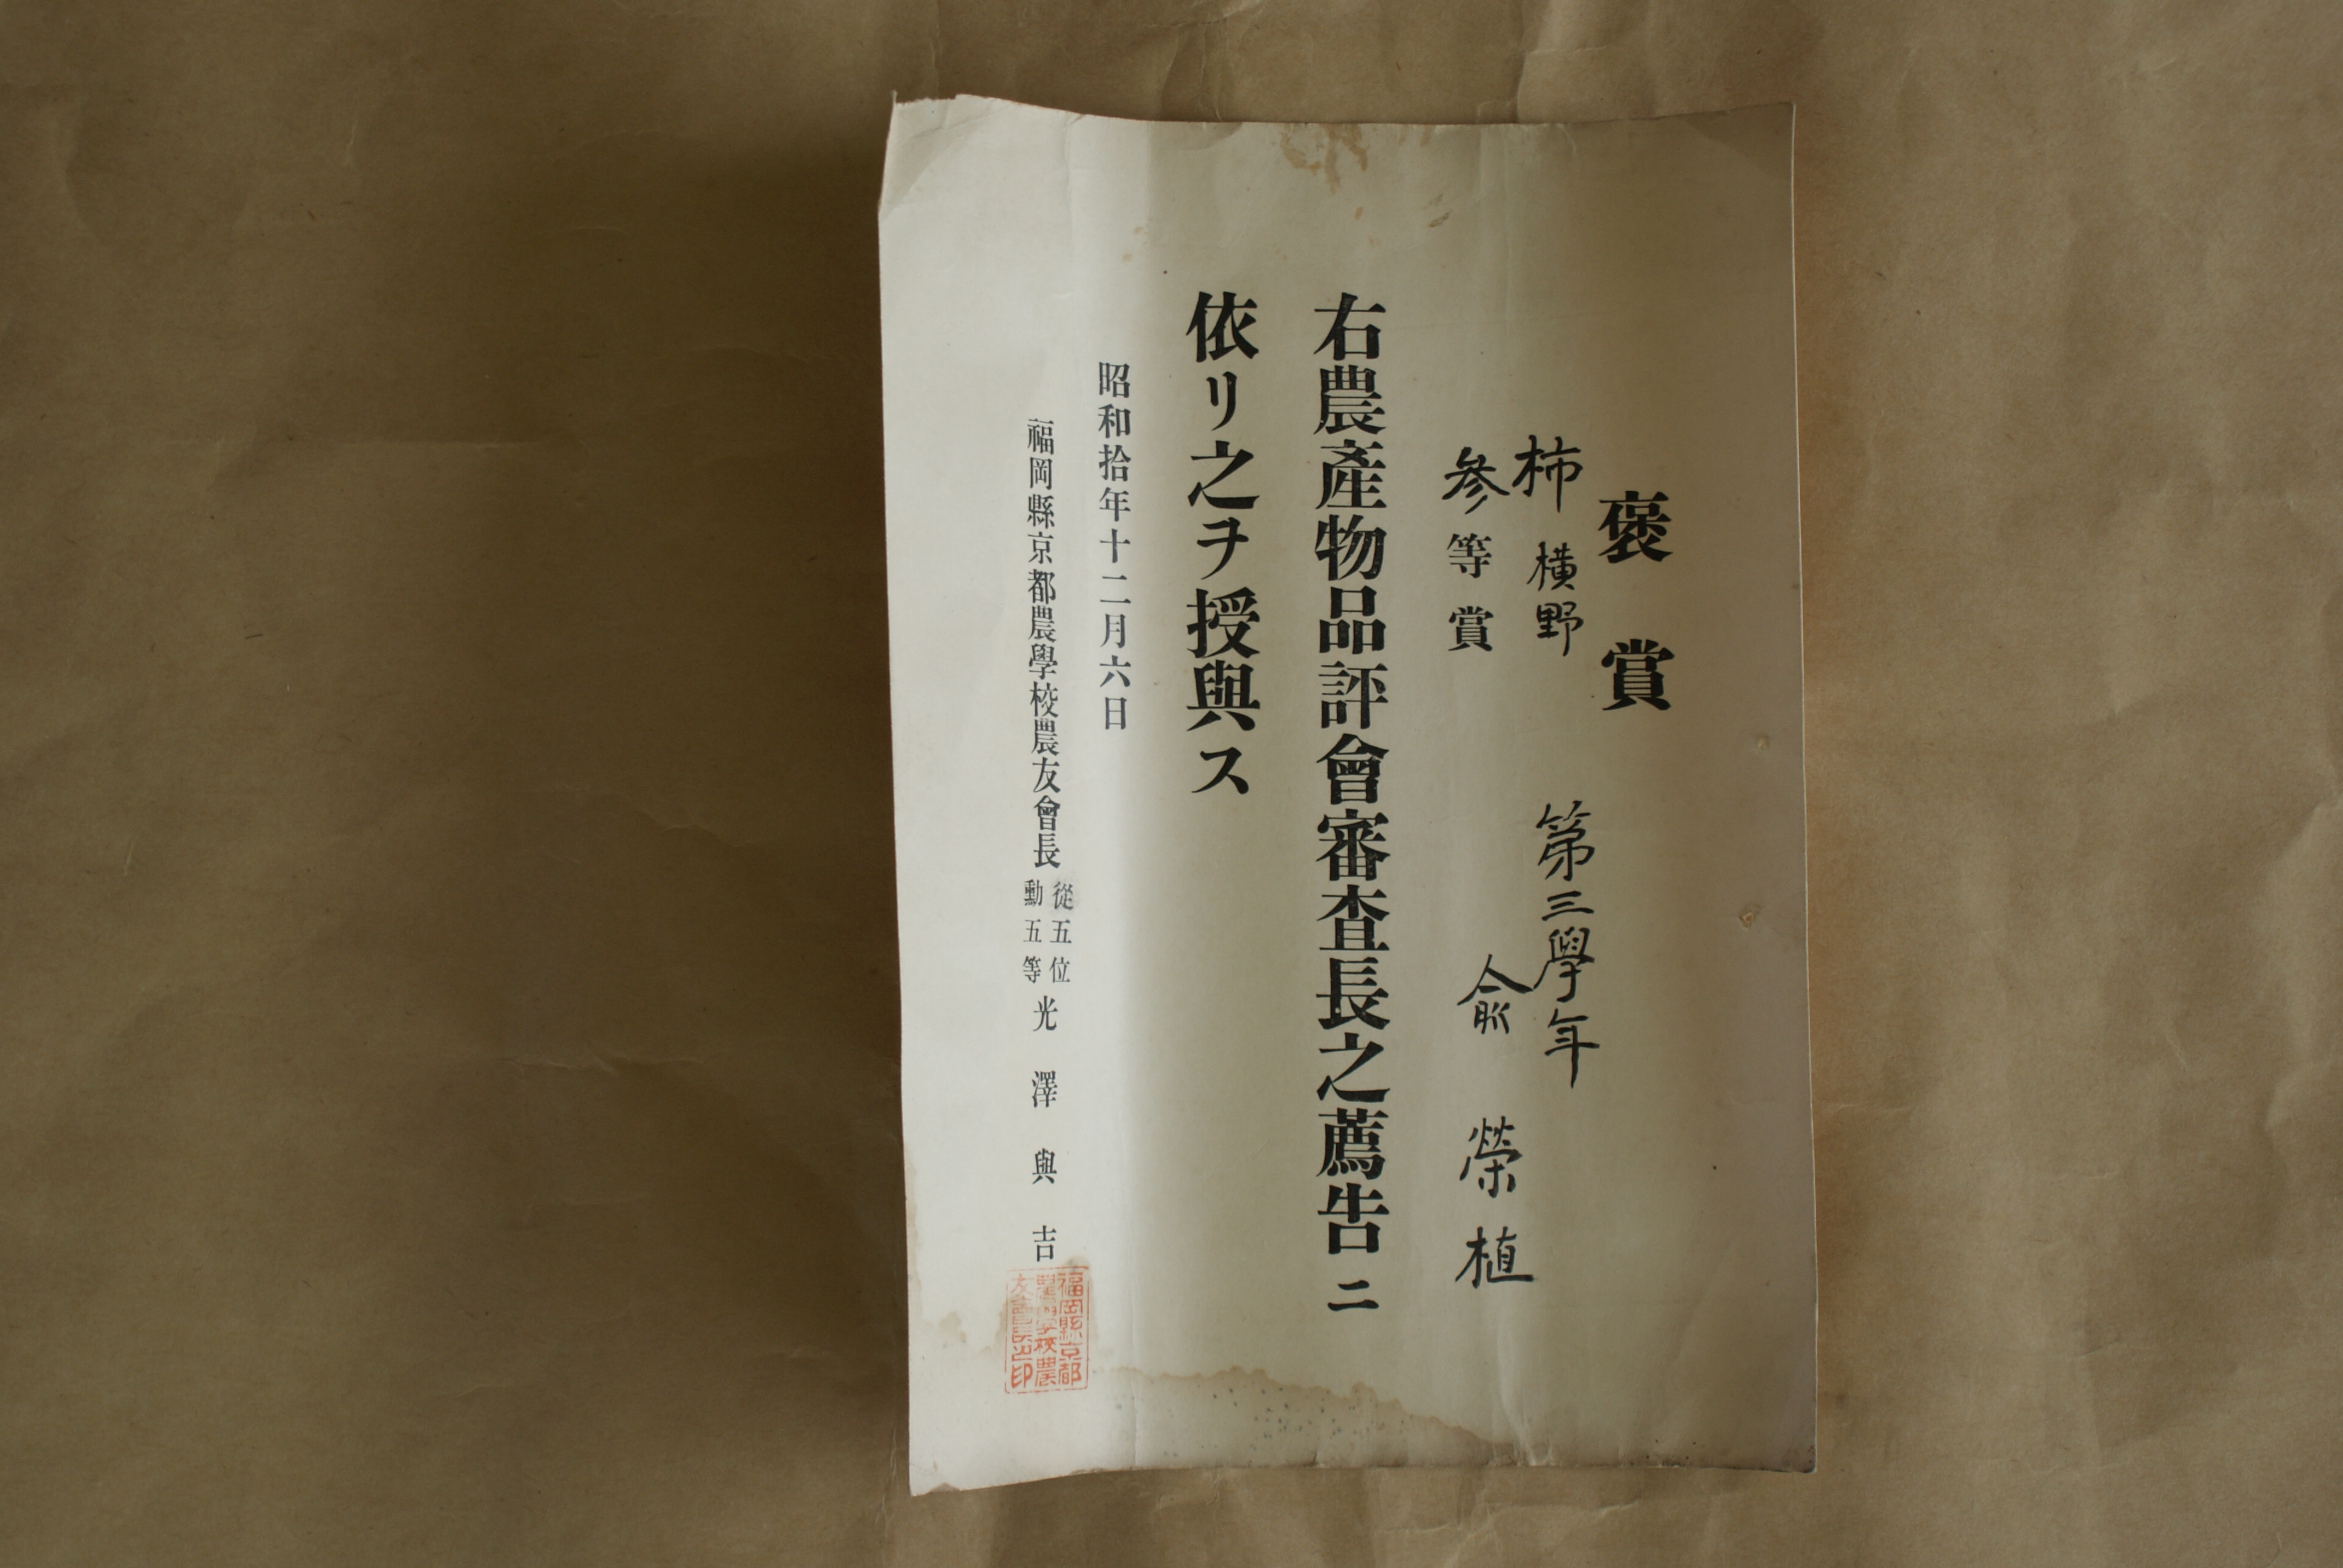 褒賞
柿 横野 第三學年
參等賞 兪榮植
右農產物品評會審査長之薦告ニ
依リ之ヲ授與ス
昭和拾年十二月六日
福岡縣京都農學校農友會長 從五位 勳五等 光澤與吉
福岡縣京都
農學校農
友會長之印